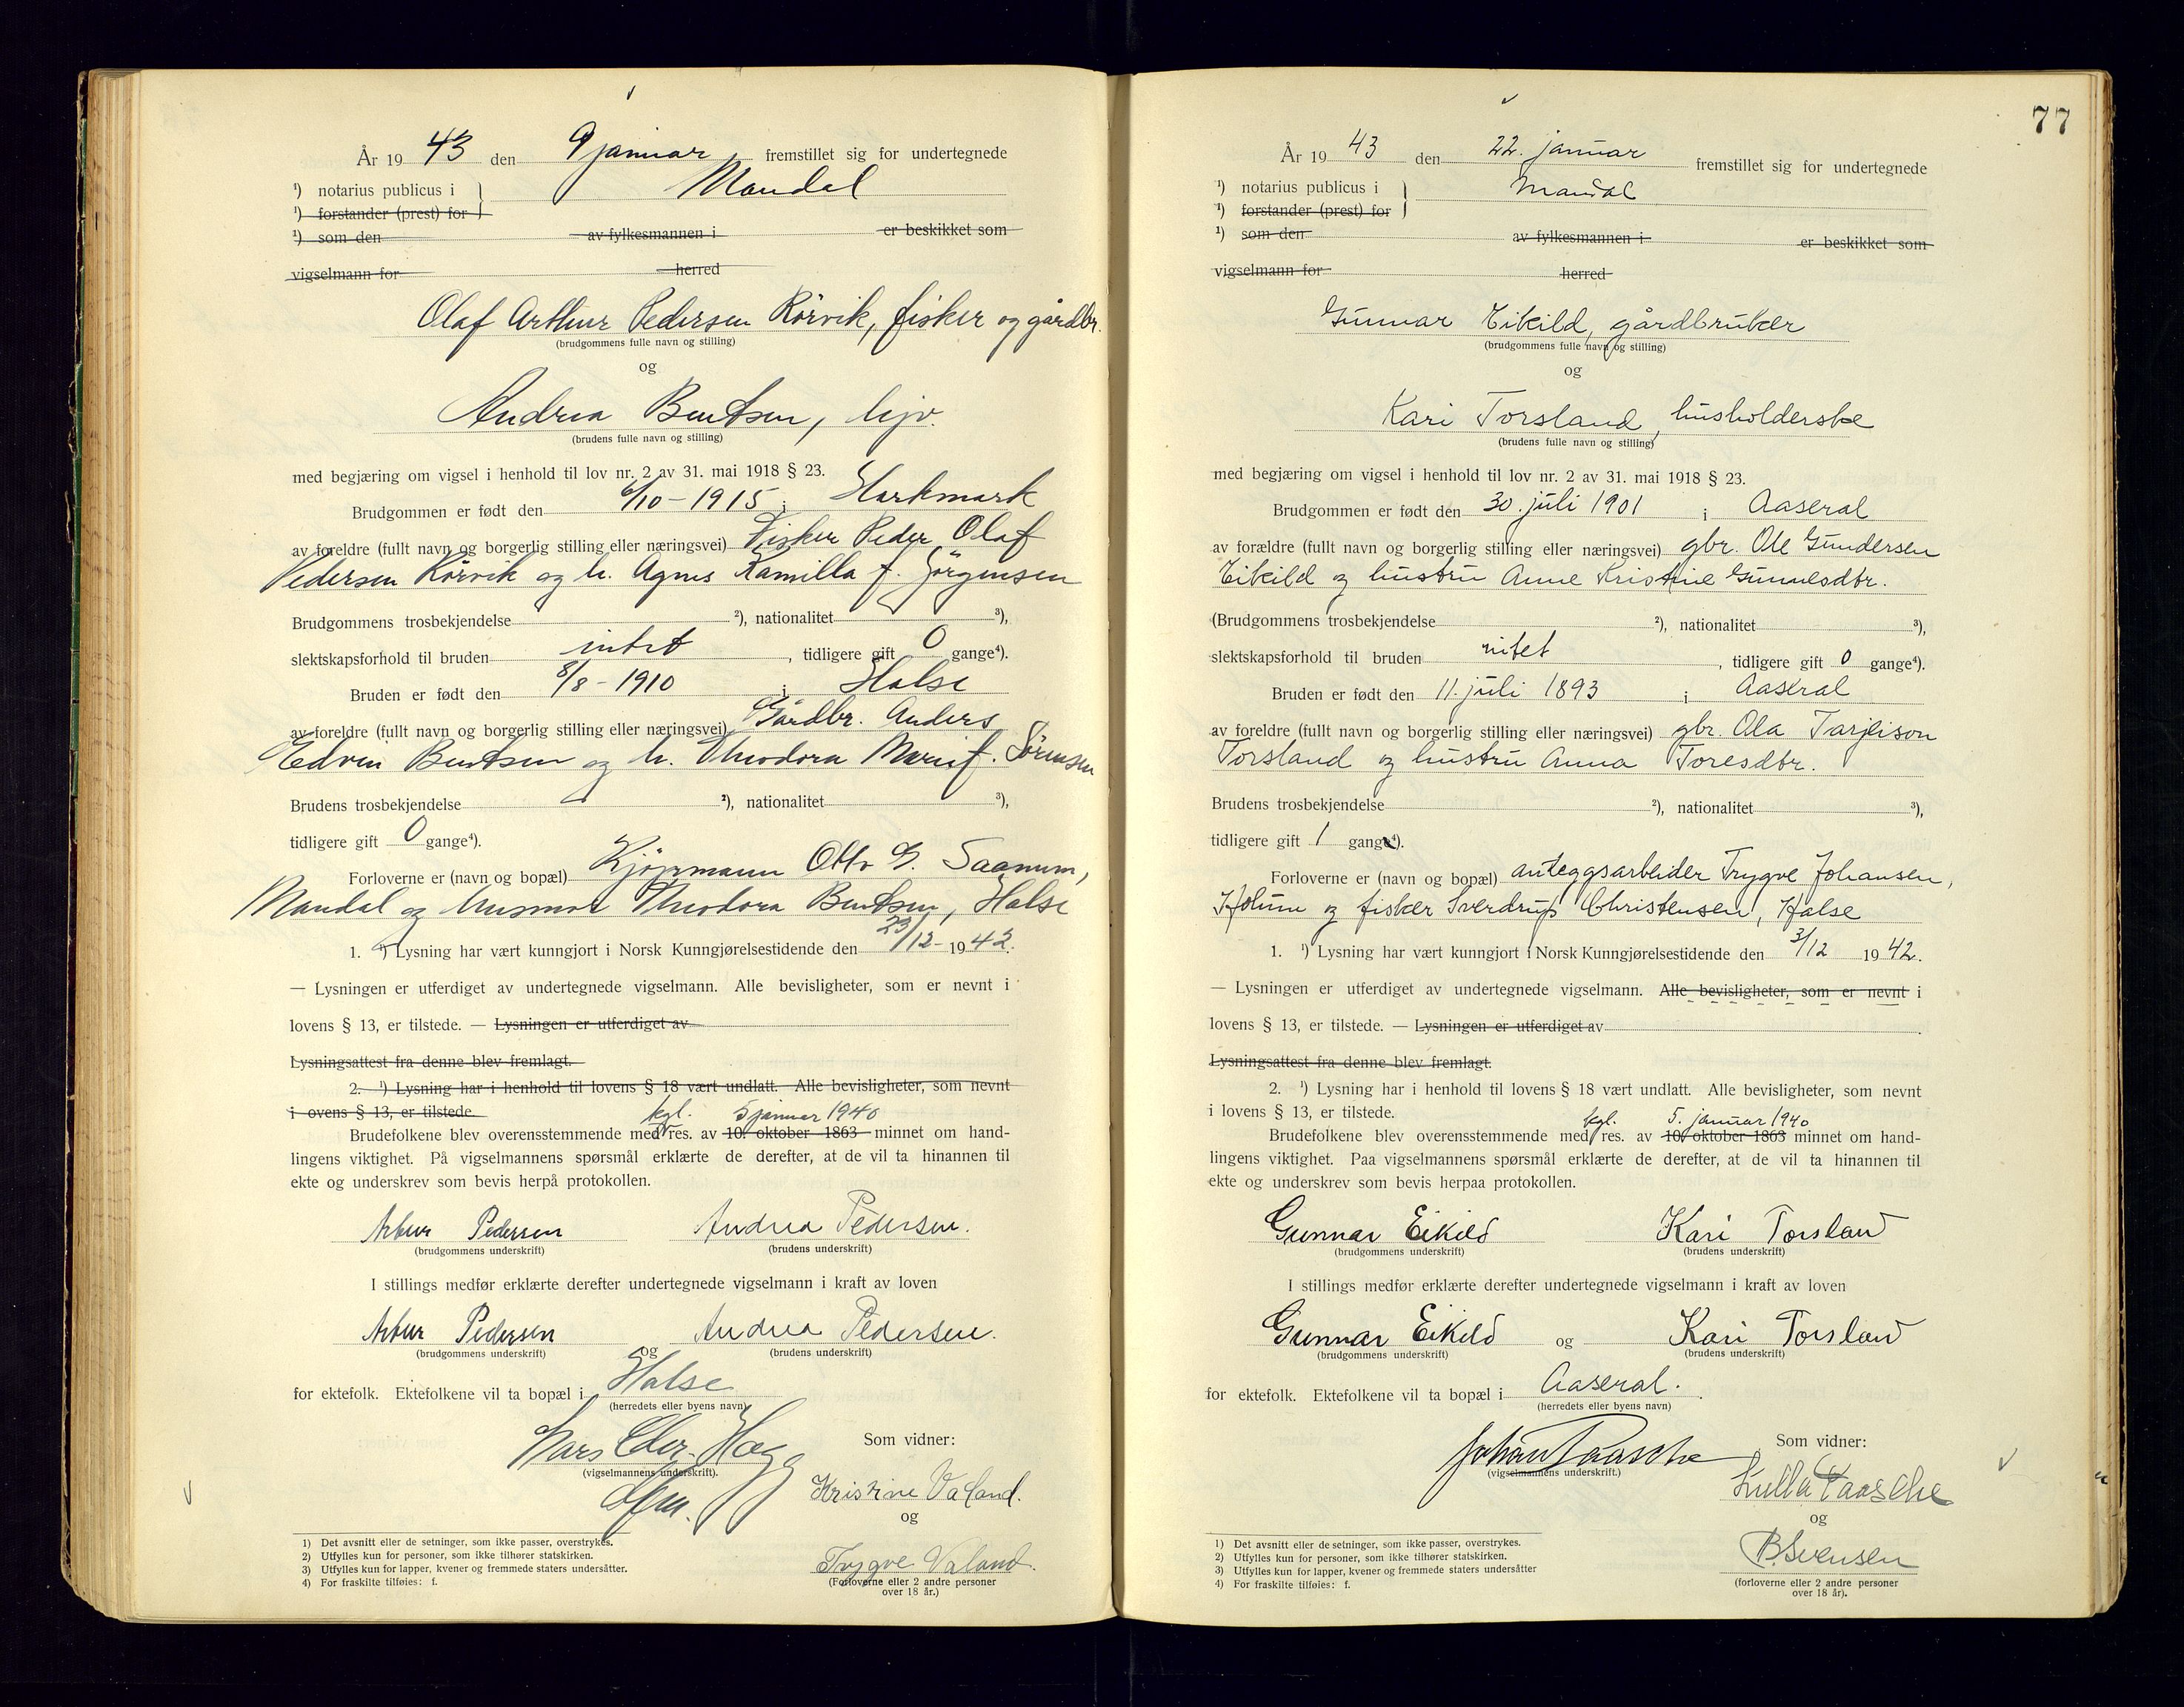 År 19 43 den 9 januar fremstillet sig for undertegnede
¹) notarius publicus i } Mandal
¹) forstander (prest) for
¹) som den av fylkesmannen i er beskikket som
vigselmann for herred
Olaf Arthur Pedersen Rörvik, fisker og gårdbr.
(brudgommens fulle navn og stilling)
og
Andrea Bentsen, hjv.
(brudens fulle navn og stilling)
med begjæring om vigsel i henhold til lov nr. 2 av 31. mai 1918 § 23.
Brudgommen er født den 6/10 - 1915 i Harkmark
av foreldre (fullt navn og borgerlig stilling eller næringsvei) Fisker Peder Olaf
Pedersen Rörvik og h. Agnes Kamilla f. Jörgensen
Brudgommens trosbekjendelse ²), nationalitet ³),
slektskapsforhold til bruden intet, tidligere gift 0 gange⁴).
Bruden er født den 8/8 - 1910 i Halse
av foreldre (fullt navn og borgerlig stilling eller næringsvei) Gårdbr. Anders
Edvin Bentsen og h. Theodora Marie f. Sörensen
Brudens trosbekjendelse ²), nationalitet ³),
tidligere gift 0 gange⁴).
Forloverne er (navn og bopæl) Kjöpmann Otto G. Saanum,
Mandal og husmor Theodora Bentsen, Halse
1. ¹) Lysning har vært kunngjort i Norsk Kunngjørelsestidende den 23/12- 1942.
— Lysningen er utferdiget av undertegnede vigselmann. Alle bevisligheter, som er nevnt i
lovens § 13, er tilstede. — Lysningen er utferdiget av
Lysningsattest fra denne blev fremlagt.
2. ¹) Lysning har i henhold til lovens § 18 vært undlatt. Alle bevisligheter, som nevnt
i ovens § 13, er tilstede.
kgl. 5 januar 1940
Brudefolkene blev overensstemmende med res. av 10. oktober 1863 minnet om hand-
lingens viktighet. På vigselmannens spørsmål erklærte de derefter, at de vil ta hinannen til
ekte og underskrev som bevis herpå protokollen.
Artur Pedersen Andrea Pedersen.
(brudgommens underskrift) (brudens underskrift)
I stillings medfør erklærte derefter undertegnede vigselmann i kraft av loven
Artur Pedersen og Andrea Pedersen.
(brudgommens underskrift) (brudens underskrift)
for ektefolk. Ektefolkene vil ta bopæl i Halse
(herredets eller byens navn)
Som vidner:
(vigselmannens underskrift).
Kristine Valand.
og
Trygve Valand.
(Forloverne eller 2 andre personer
over 18 år.)
1) Det avsnitt eller de setninger, som ikke passer, overstrykes.
2) Utfylles kun for personer, som ikke tilhører statskirken.
3) Utfylles kun for lapper, kvener og fremmede staters undersåtter.
4) For fraskilte tilføies: f.
77
År 19 43 den 22. januar fremstillet sig for undertegnede
¹) notarius publicus i } Mandal
¹) forstander (prest) for
¹) som den av fylkesmannen i er beskikket som
vigselmann for herred
Gunnar Eikild, gårdbruker
(brudgommens fulle navn og stilling)
og
Kari Torsland, husholderske
(brudens fulle navn og stilling)
med begjæring om vigsel i henhold til lov nr. 2 av 31. mai 1918 § 23.
Brudgommen er født den 30. juli 1901 i Aaseral
av forældre (fullt navn og borgerlig stilling eller næringsvei) gbr. Ole Gundersen
Eikild og hustru Anne Kristine Gunnesdtr.
(Brudgommens trosbekjendelse ²), nationalitet ³),
slektskapsforhold til bruden intet, tidligere gift 0 gange⁴).
Bruden er født den 11. juli 1893 i Aaseral
av foreldre (fullt navn og borgerlig stilling eller næringsvei) gbr. Ola Tarjeison
Torsland og hustru Anna Toresdtr.
Brudens trosbekjendelse ²), nationalitet ³),
tidligere gift 1 gang⁴).
Forloverne er (navn og bopæl) anleggsarbeider Trygve Johansen,
Holum og fisker Sverdrup Christensen, Halse
1. ¹) Lysning har vært kunngjort i Norsk Kunngjørelsestidende den 3/12 1942.
— Lysningen er utferdiget av undertegnede vigselmann. Alle bevisligheter, som er nevnt i
lovens § 13, er tilstede. — Lysningen er utferdiget av
Lysningsattest fra denne blev fremlagt.
2. ¹) Lysning har i henhold til lovens § 18 vært undlatt. Alle bevisligheter, som nevnt
i lovens § 13, er tilstede.
kgl. 5. januar 1940
Brudefolkene blev overensstemmende med res. av 10. oktober 1863 minnet om hand-
lingens viktighet. Paa vigselmannens spørsmål erklærte de derefter, at de vil ta hinannen til
ekte og underskrev som bevis herpaa protokollen.
Gunnar Eikild Kari Torsland
(brudgommens underskrift) (brudens underskrift)
I stillings medfør erklærte derefter undertegnede vigselmann i kraft av loven
Gunnar Eikild og Kari Torsland
(brudgommens underskrift) (brudens underskrift)
for ektefolk. Ektefolkene vil ta bopæl i Aaseral.
(herredets eller byens navn)
Johan Paasche Som vidner:
(vigselmannens underskrift.)
Paasche
og
B. Svensen
(forloverne eller 2 andre personer
over 18 år).
1) Det avsnitt eller de setninger, som ikke passer, overstrykes.
2) Utfylles kun for personer, som ikke tilhører statskirken.
3) Utfylles kun for lapper, kvener og fremmede staters undersåtter
4) For fraskilte tilføies: f.